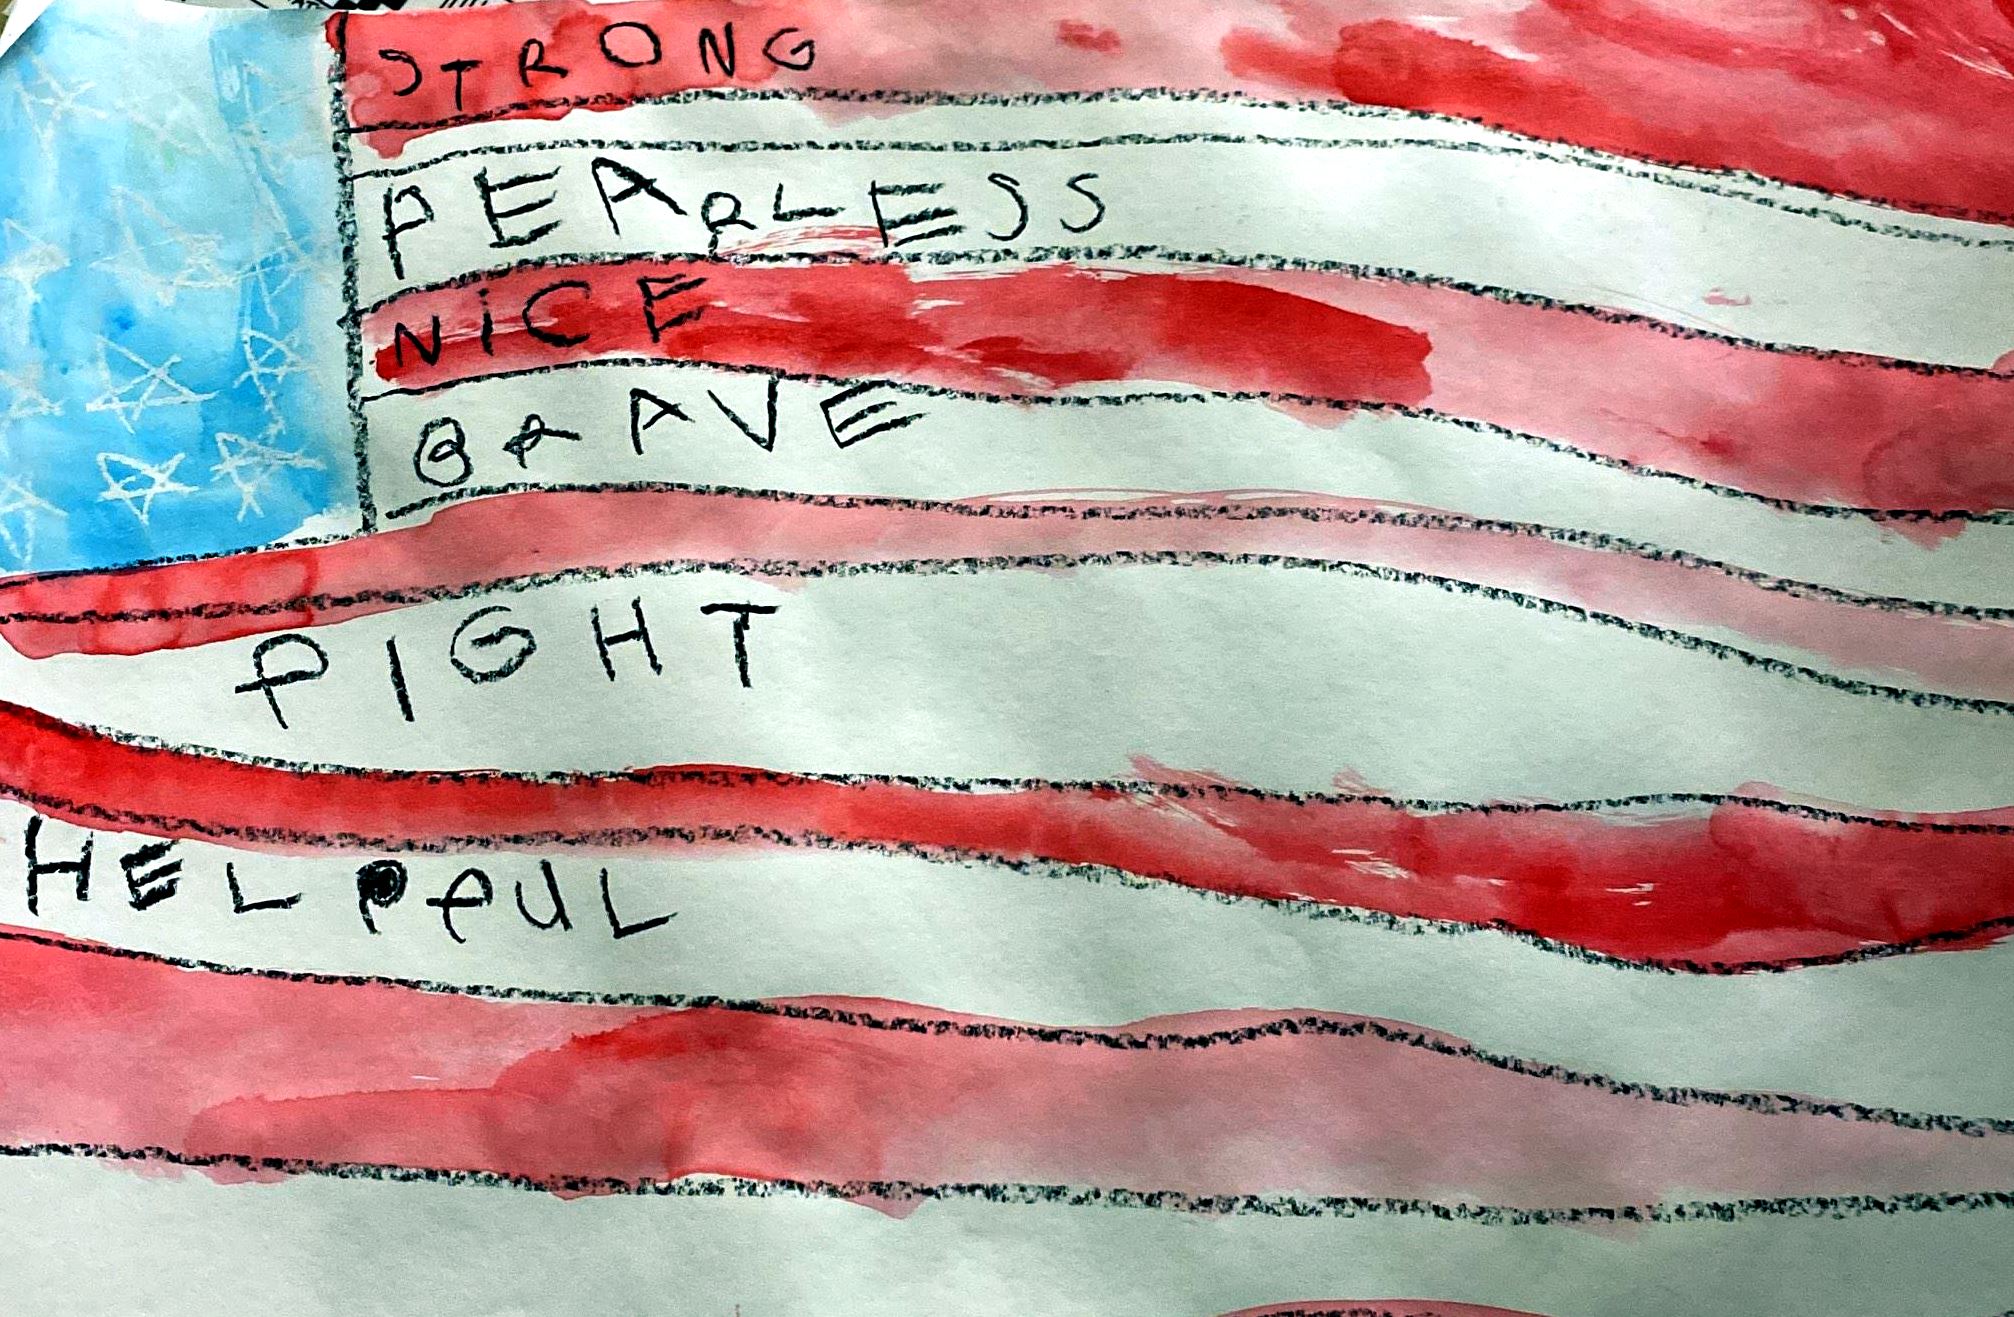 STRONG
PEARLESS
NiCE
BRAVE
PIGHT
HELPfUL